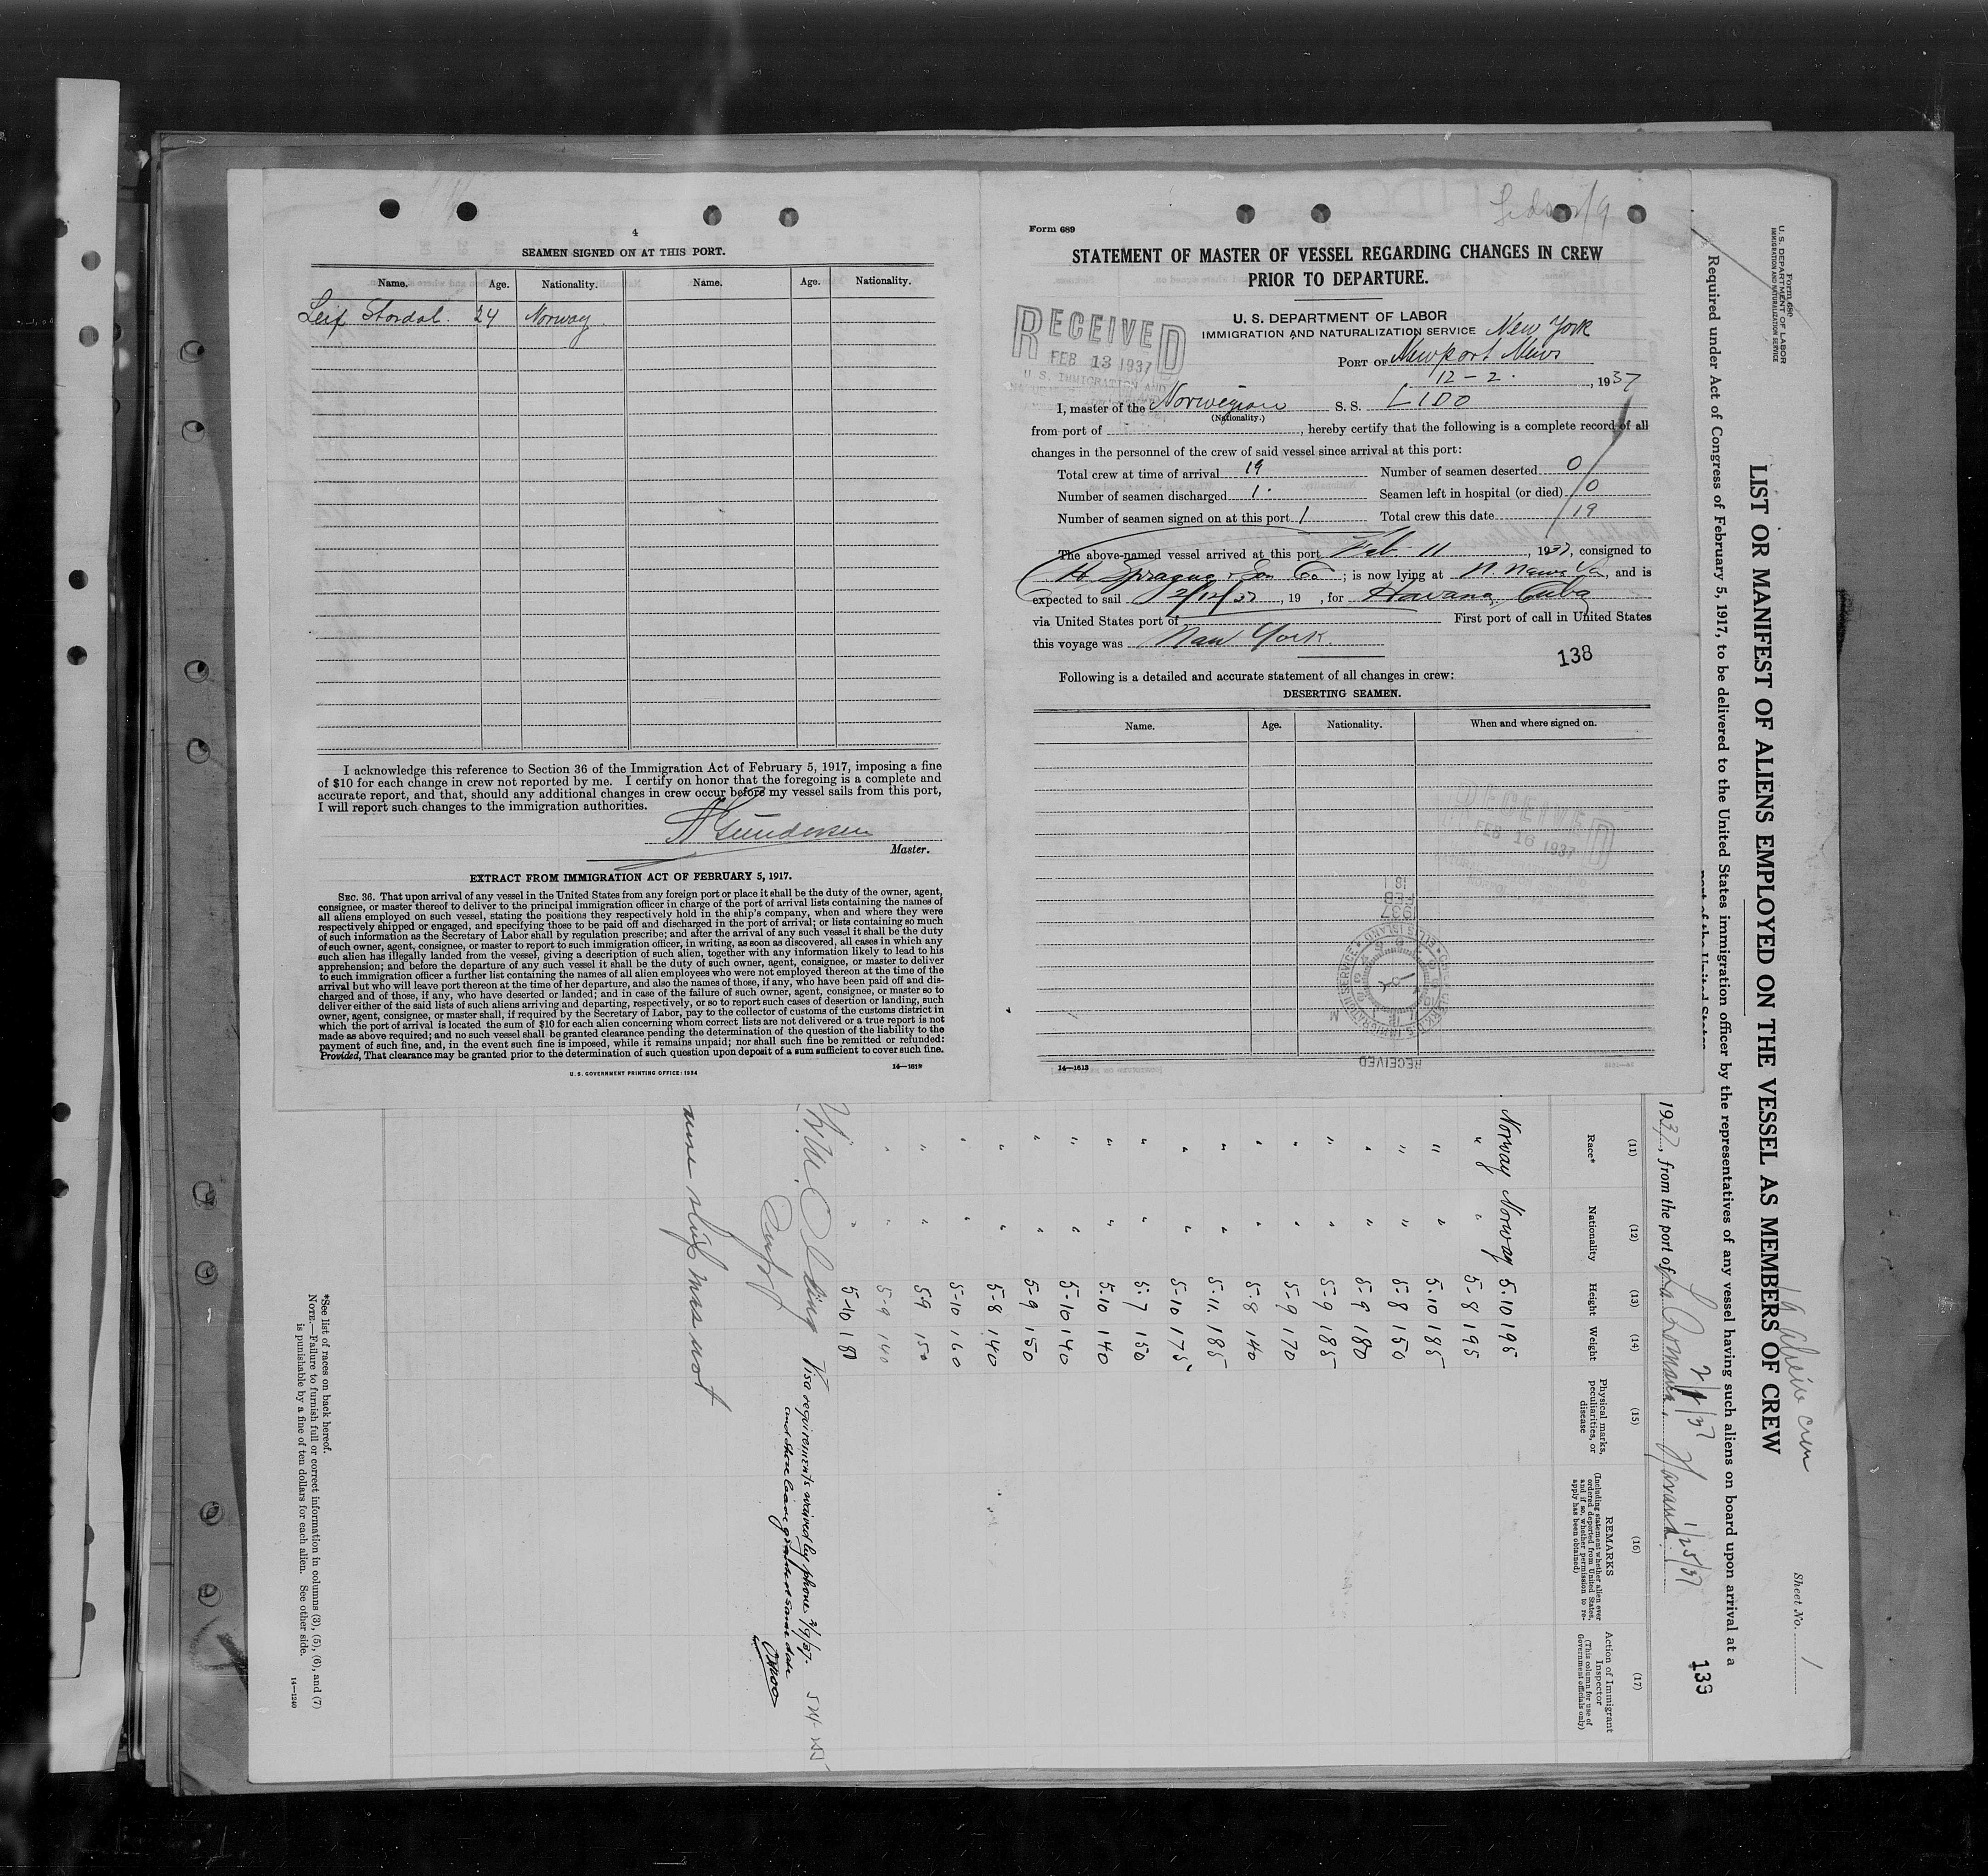 4
SEAMEN SIGNED ON AT THIS PORT.
Name. Age. Nationality. Name. Age. Nationality.
Leif Stordal. 24 Norway.
I acknowledge this reference to Section 36 of the Immigration Act of February 5, 1917, imposing a fine
of $10 for each change in crew not reported by me. I certify on honor that the foregoing is a complete and
accurate report, and that, should any additional changes in crew occur before my vessel sails from this port,
I will report such changes to the immigration authorities.
Gundersen
Master.
EXTRACT FROM IMMIGRATION ACT OF FEBRUARY 5, 1917.
SEC. 36. That upon arrival of any vessel in the United States from any foreign port or place it shall be the duty of the owner, agent,
consignee, or master thereof to deliver to the principal immigration officer in charge of the port of arrival lists containing the names of
all aliens employed on such vessel, stating the positions they respectively hold in the ship's company, when and where they were
respectively shipped or engaged, and specifying those to be paid off and discharged in the port of arrival; or lists containing so much
of such information as the Secretary of Labor shall by regulation prescribe; and after the arrival of any such vessel it shall be the duty
of such owner, agent, consignee, or master to report to such immigration officer, in writing, as soon as discovered, all cases in which any
such alien has illegally landed from the vessel, giving a description of such alien, together with any information likely to lead to his
apprehension; and before the departure of any such vessel it shall be the duty of such owner, agent, consignee, or master to deliver
to such immigration officer a further list containing the names of all alien employees who were not employed thereon at the time of the
arrival but who will leave port thereon at the time of her departure, and also the names of those, if any, who have been paid off and dis-
charged and of those, if any, who have deserted or landed; and in case of the failure of such owner, agent, consignee, or master so to
deliver either of the said lists of such aliens arriving and departing, respectively, or so to report such cases of desertion or landing, such
owner, agent, consignee, or master shall, if required by the Secretary of Labor, pay to the collector of customs of the customs district in
which the port of arrival is located the sum of $10 for each alien concerning whom correct lists are not delivered or a true report is not
made as above required; and no such vessel shall be granted clearance pending the determination of the question of the liability to the
payment of such fine, and, in the event such fine is imposed, while it remains unpaid; nor shall such fine be remitted or refunded:
Provided, That clearance may be granted prior to the determination of such question upon deposit of a sum sufficient to cover such fine.
U. S. GOVERNMENT PRINTING OFFICE: 1934
14—1613
Form 689
STATEMENT OF MASTER OF VESSEL REGARDING CHANGES IN CREW
PRIOR TO DEPARTURE.
U. S. DEPARTMENT OF LABOR
IMMIGRATION AND NATURALIZATION SERVICE New York
RECEIVED
FEB 13 1937
U. S. IMMIGRATION AND
PORT OF Newport News
12-2. , 1937
I, master of the Norwegian S. S. LIDO
(Nationality.)
from port of , hereby certify that the following is a complete record of all
changes in the personnel of the crew of said vessel since arrival at this port:
Total crew at time of arrival 19 Number of seamen deserted 0
Number of seamen discharged 1. Seamen left in hospital (or died) 0
Number of seamen signed on at this port 1 Total crew this date 19
The above-named vessel arrived at this port Feb. 11 , 1937, consigned to
Sprague & Son Co ; is now lying at N. News Va, and is
expected to sail 2/12/37 , 19 , for Havana, Cuba
via United States port of First port of call in United States
this voyage was New York.
138
Following is a detailed and accurate statement of all changes in crew:
DESERTING SEAMEN.
Name. Age. Nationality. When and where signed on.
RECEIVED
FEB 16 1937
1937
FEB
18
IMMIGRATION SERVICE
ELLIS ISLAND
RECEIVED
14—1613
Form 680
U. S. DEPARTMENT OF LABOR
IMMIGRATION AND NATURALIZATION SERVICE
Sheet No. 1
19 Alien crew
LIST OR MANIFEST OF ALIENS EMPLOYED ON THE VESSEL AS MEMBERS OF CREW
Required under Act of Congress of February 5, 1917, to be delivered to the United States immigration officer by the representatives of any vessel having such aliens on board upon arrival at a
port of the United States
133
1937, from the port of La Romana, Havana 1/25/37
(11) (12) (13) (14) (15) (16) (17)
Race* Nationality Height Weight
Physical marks, peculiarities, or disease
REMARKS
(Including statement whether alien ever ordered deported from United States, and if so, whether permission to re-apply has been obtained)
Action of Immigrant Inspector
(This column for use of Government officials only)
Norway Norway 5.10 195
" " 5-8 195
" " 5.10 185
" " 5-8 150
" " 5-9 180
" " 5-9 185
" " 5-9 170
" " 5.8 140
" " 5.11. 185
" " 5-10 175
" " 5.7 150
" " 5.10 140
" " 5-10 140
" " 5-9 150
" " 5-8 140
" " 5-10 160
" " 5-9 150
" " 5-9 140
" " 5-10 180
Visa requirements waived by phone 2/9/37.
and shore leave granted same date
*See list of races on back hereof.
NOTE.—Failure to furnish full or correct information in columns (3), (5), (6), and (7)
is punishable by a fine of ten dollars for each alien. See other side.
14—1240